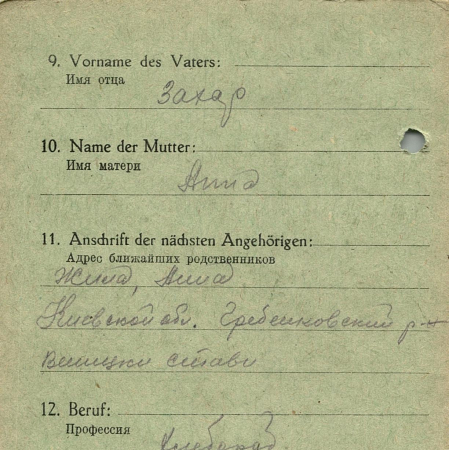 9. Vorname des Vaters:
Имя отца
Захар
10. Name der Mutter:
Имя матери
Анна
11. Anschrift der nächsten Angehörigen:
Адрес ближайших родственников
Жила, Анна
Киевской обл. Гребенковский р-н
ставы
12. Beruf:
Профессия
Хлебороб.